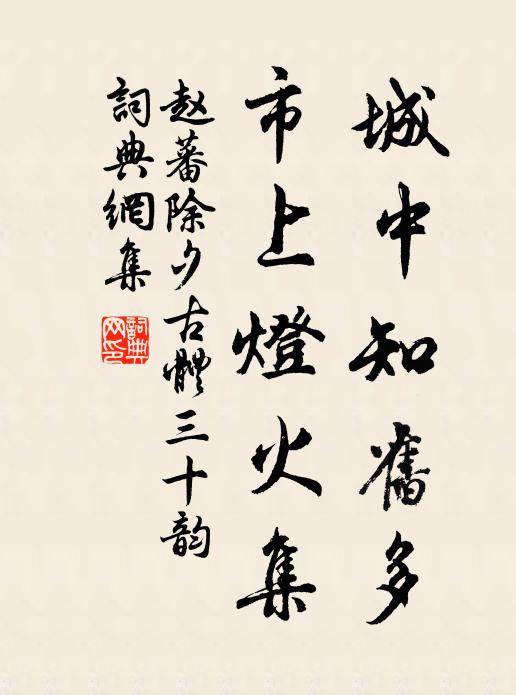 城中知舊多
市上燈火集
赵蕃除夕古體三十韵
詞典網集
詞典网印